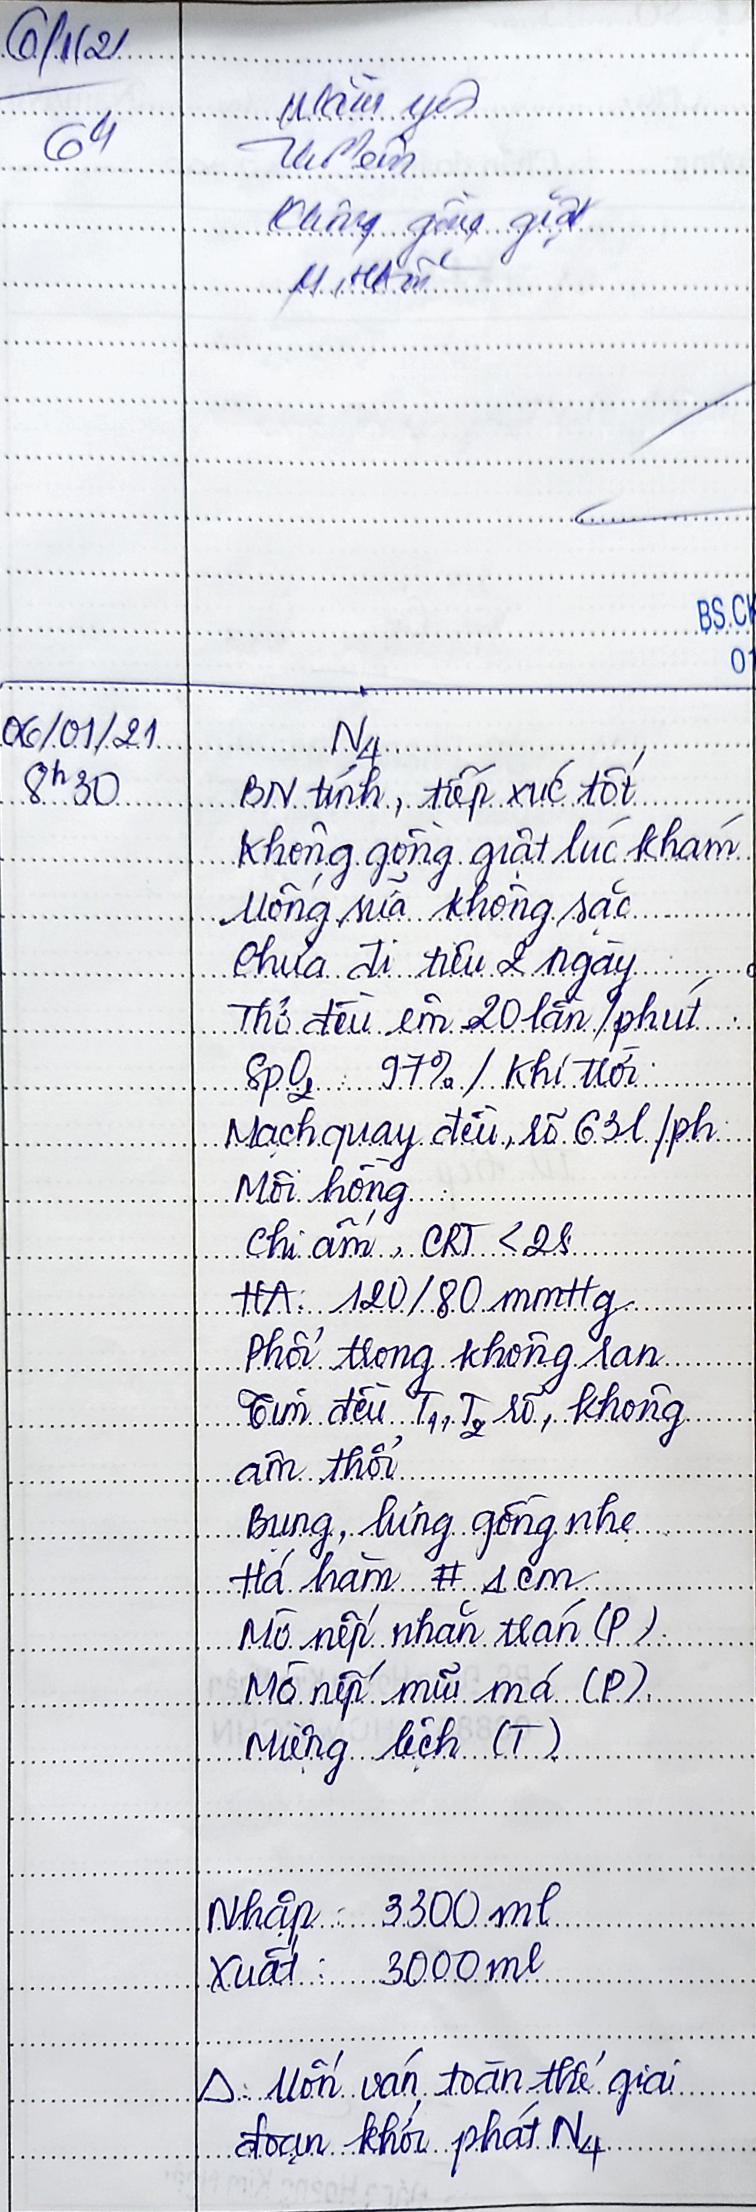 6/1/21
6h
Nằm yên
Thở êm
Không gồng giật
M, HA ổn
BS.CK
01
06/01/21
8h30
N4
BN tỉnh, tiếp xúc tốt
Không gồng giật lúc khám
Uống sữa không sặc
Chưa đi tiêu 2 ngày
Thở đều êm 20 lần/phút
SpO2: 97% / khí trời
Mạch quay đều, rõ 63l/ph
Môi hồng
Chi ấm, CRT <2s
HA: 120/80 mmHg
Phổi trong không ran
Tim đều T1, T2 rõ, không
âm thổi
Bụng, lưng gồng nhẹ
Há hàm # 1cm
Mờ nếp nhăn trán (P)
Mờ nếp mũi má (P)
Miệng lệch (T)
Nhập: 3300 ml
Xuất: 3000 ml
Δ: Uốn ván toàn thể giai
đoạn khởi phát N4